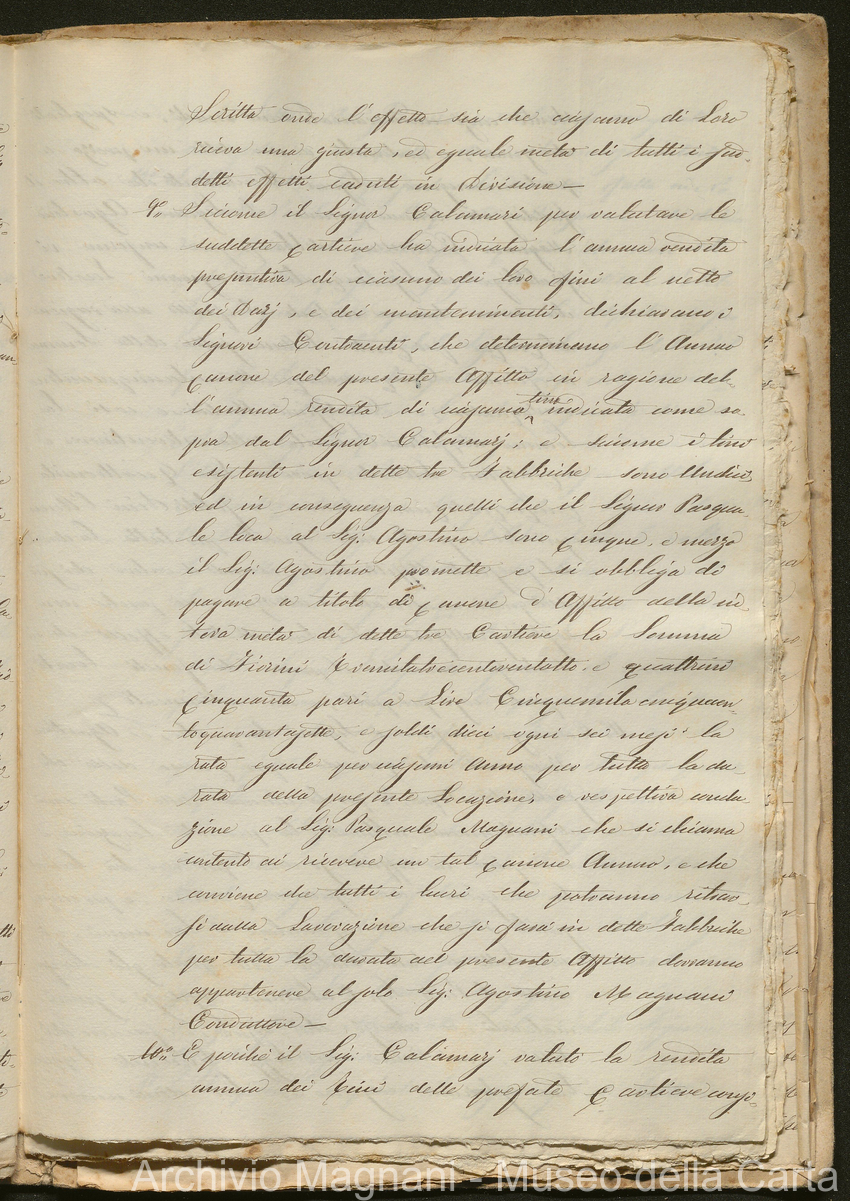 Scritta onde l'effetto sia che ciascuno di Loro
riceva una giusta, ed eguale metà di tutti i sud-
detti effetti caduti in Divisione —
9.° Siccome il Signor Calamari per valutare le
suddette Cartiere ha indicata l'annua rendita
presuntiva di ciascuno dei loro fini al netto
dei Dazj, e dei mantenimenti, dichiarano i
Signori Contraenti, che determinano l'Annuo
canone del presente Affitto in ragione del-
l'annua rendita di ciascuno tino indicata come so-
pra dal Signor Calamarj; e siccome i tini
esistenti in dette tre Fabbriche sono Undici,
ed in conseguenza quelli che il Signor Pasqua-
le loca al Sig: Agostino sono cinque, e mezzo
il Sig: Agostino promette e si obbliga di
pagare a titolo di canone d'Affitto della in-
tera metà di dette tre Cartiere la Somma
di Fiorini tremilatrecentoventotto, e quattrini
cinquanta pari a Lire Cinquemila cinquecen-
toquarantasette, e soldi dieci ogni sei mesi la
rata eguale per ciascun anno per tutta la du-
rata della presente Locazione, e respettiva condu-
zione al Sig: Pasquale Magnani che si chiama
contento di ricevere un tal canone Annuo, e che
conviene che tutti i lucri che potranno ritrar-
si dalla Lavorazione che si farà in dette Fabbriche
per tutta la durata del presente Affitto dovranno
appartenere al solo Sig: Agostino Magnani
Conduttore —
10.° E poichè il Sig: Calamarj valutò la rendita
annua dei Tini delle prefate Cartiere consi-
Archivio Magnani - Museo della Carta